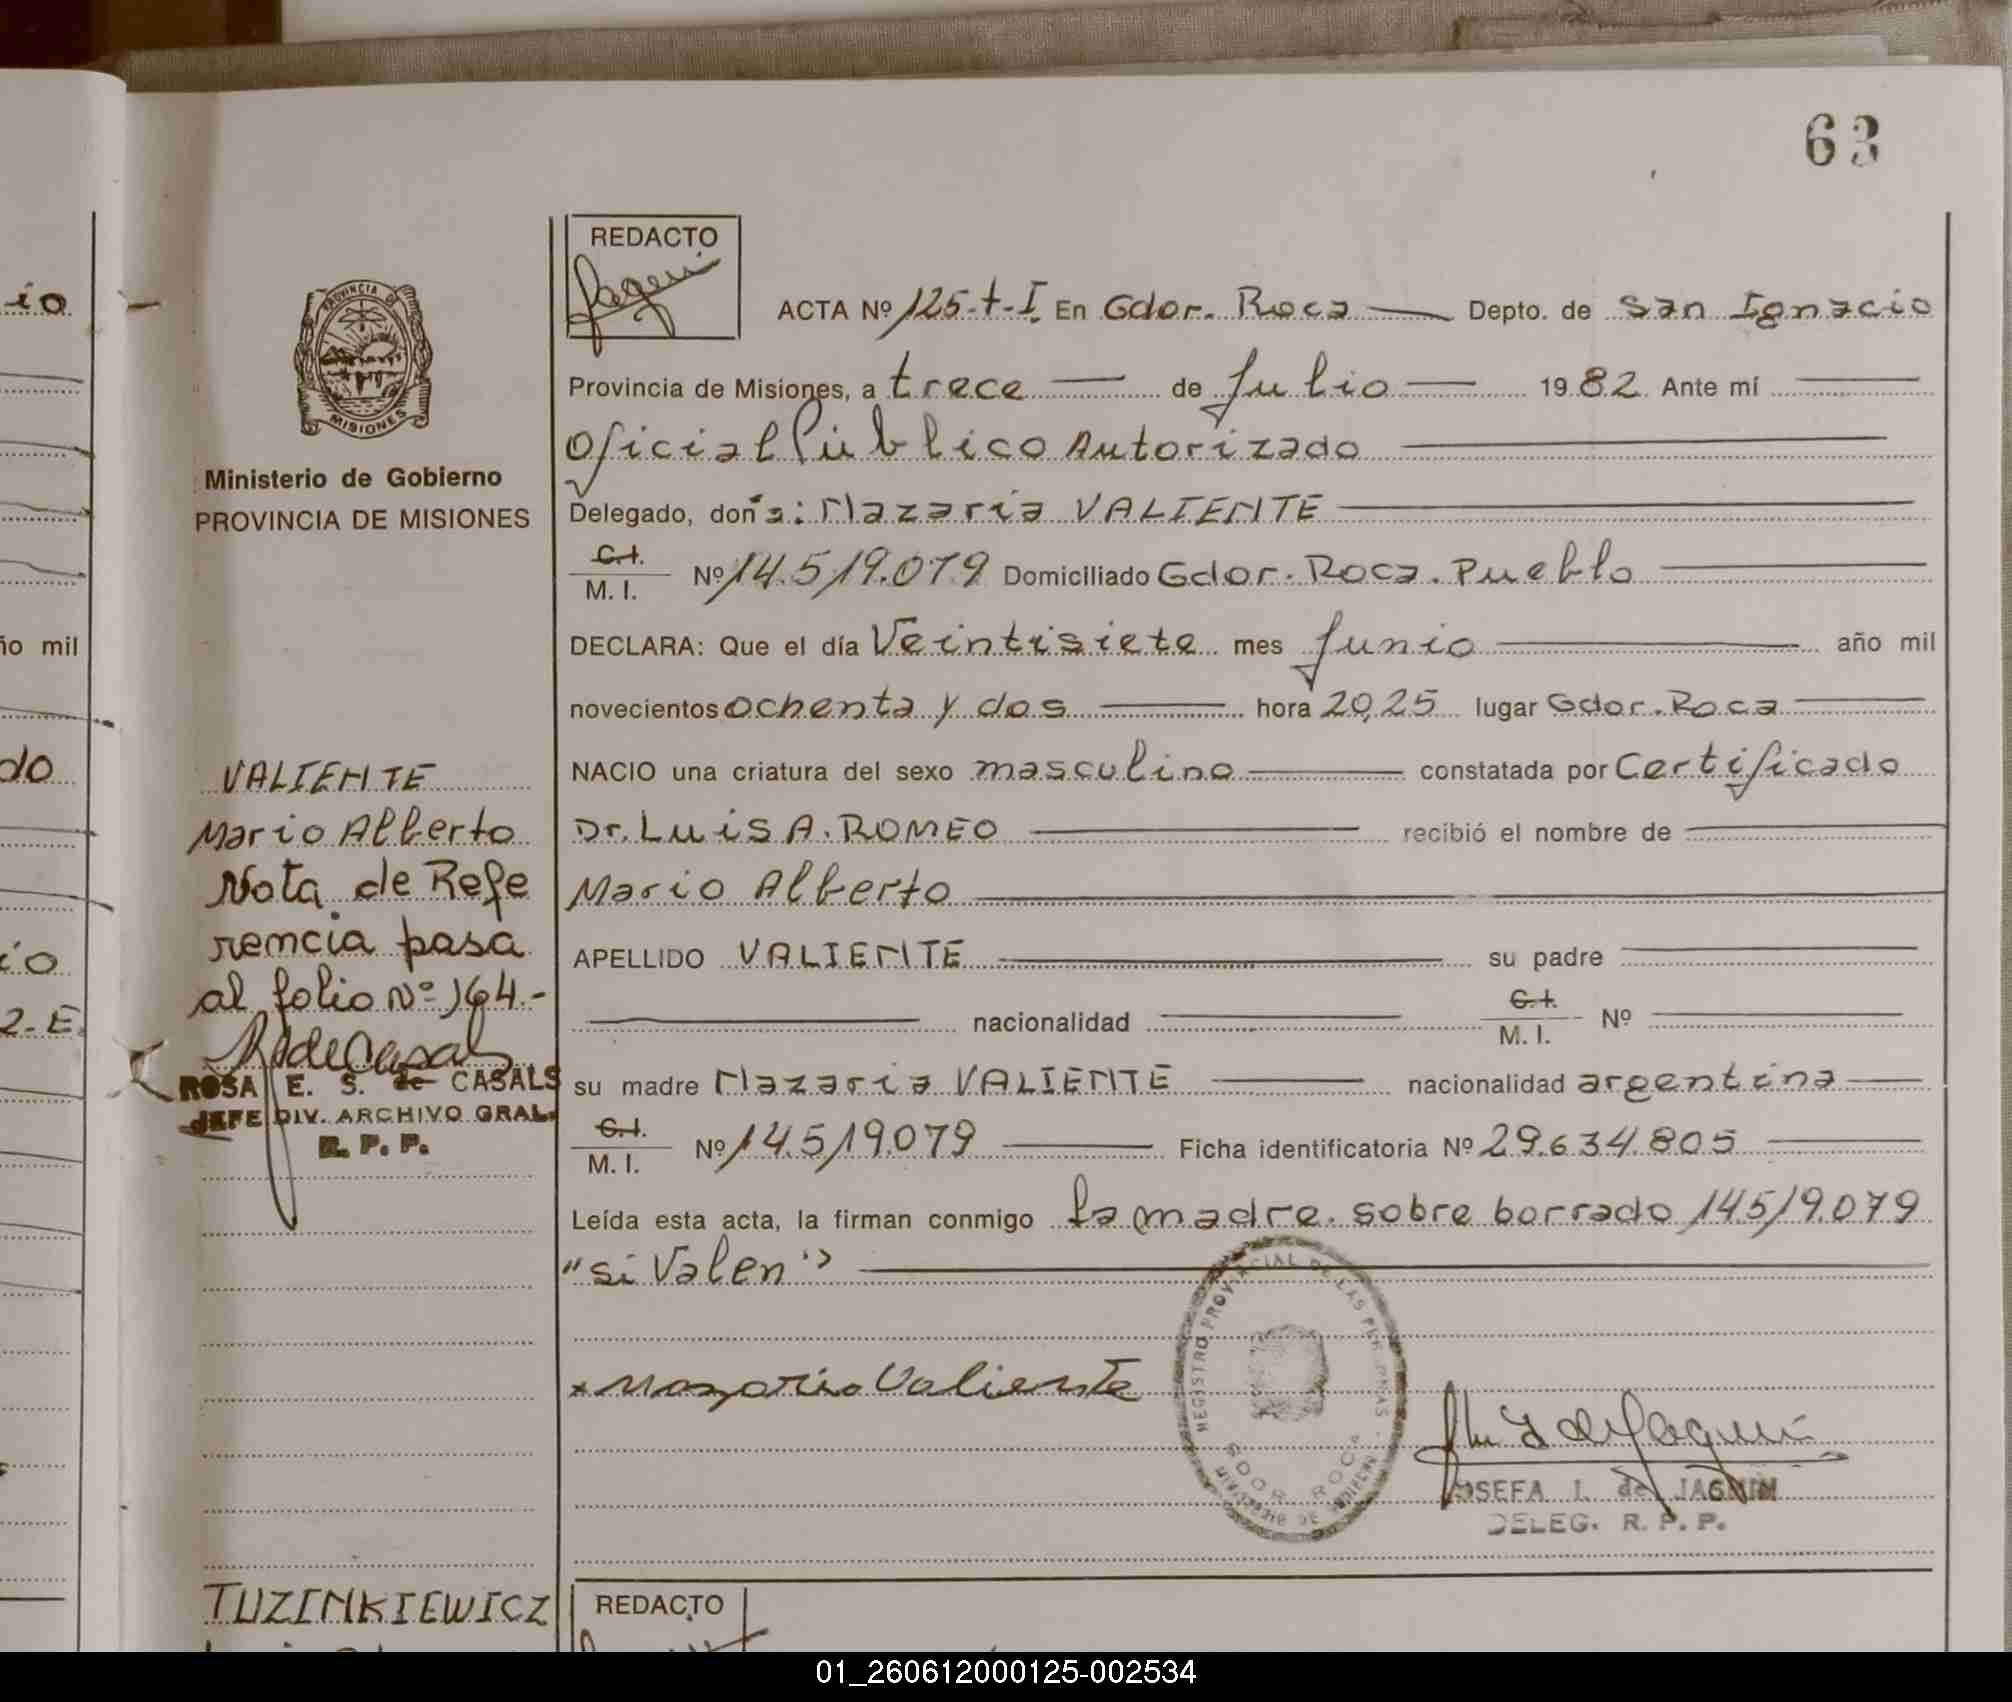 63
REDACTO
ACTA Nº 125-t-I. En Gdor. Roca Depto. de San Ignacio
Provincia de Misiones, a trece de Julio 1982 Ante mí
Oficial Público Autorizado
Delegado, doña: Nazaria VALIENTE
C.I.
M. I. Nº 14.519.079 Domiciliado Gdor. Roca. Pueblo
DECLARA: Que el día Veintisiete mes Junio año mil
novecientos ochenta y dos hora 20,25 lugar Gdor. Roca
NACIO una criatura del sexo masculino constatada por Certificado
Dr. Luis A. ROMEO recibió el nombre de
Mario Alberto
APELLIDO VALIENTE su padre
nacionalidad C.I. M. I. Nº
su madre Nazaria VALIENTE nacionalidad argentina
C.I.
M. I. Nº 14.519.079 Ficha identificatoria Nº 29.634.805
Leída esta acta, la firman conmigo la madre. sobre borrado 14519.079
"si Valen"
x Nazaria Valiente
REGISTRO PROVINCIAL DE LAS PERSONAS
GDOR ROCA
JOSEFA I. de JAGUIN
DELEG. R. P. P.
PROVINCIA DE
MISIONES
Ministerio de Gobierno
PROVINCIA DE MISIONES
VALIENTE
Mario Alberto
Nota de Refe
rencia pasa
al folio Nº 164.-
ROSA E. S. de CASALS
JEFE DIV. ARCHIVO GRAL.
R. P. P.
TUZINKIEWICZ
REDACTO
io
ño mil
do
io
2-E.
01_260612000125-002534